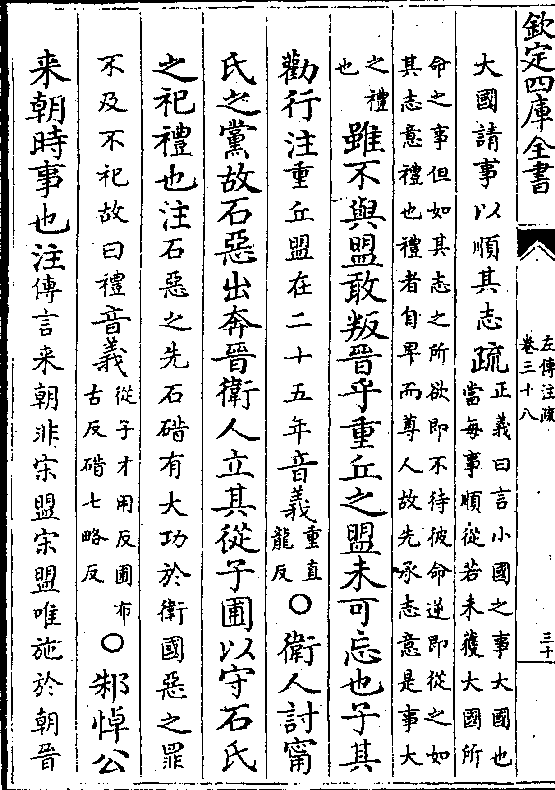 欽定四庫全書
左傳注疏
卷三十八
三十
大國請事以順其志疏正義曰言小國之事大國也
當每事順從若未獲大國所
命之事但如其志之所欲即不待彼命逆即從之如
其志意禮也禮者自卑而尊人故先承志意是事大
之禮
也
雖不與盟敢叛晉乎重丘之盟未可忘也子其
勸行注重丘盟在二十五年音義重直
龍反
○衛人討甯
氏之黨故石惡出奔晉衛人立其從子圃以守石氏
之祀禮也注石惡之先石碏有大功於衛國惡之罪
不及不祀故曰禮音義從子才用反圃布
古反碏七略反
○邾悼公
来朝時事也注傳言来朝非宋盟宋盟唯施於朝晉